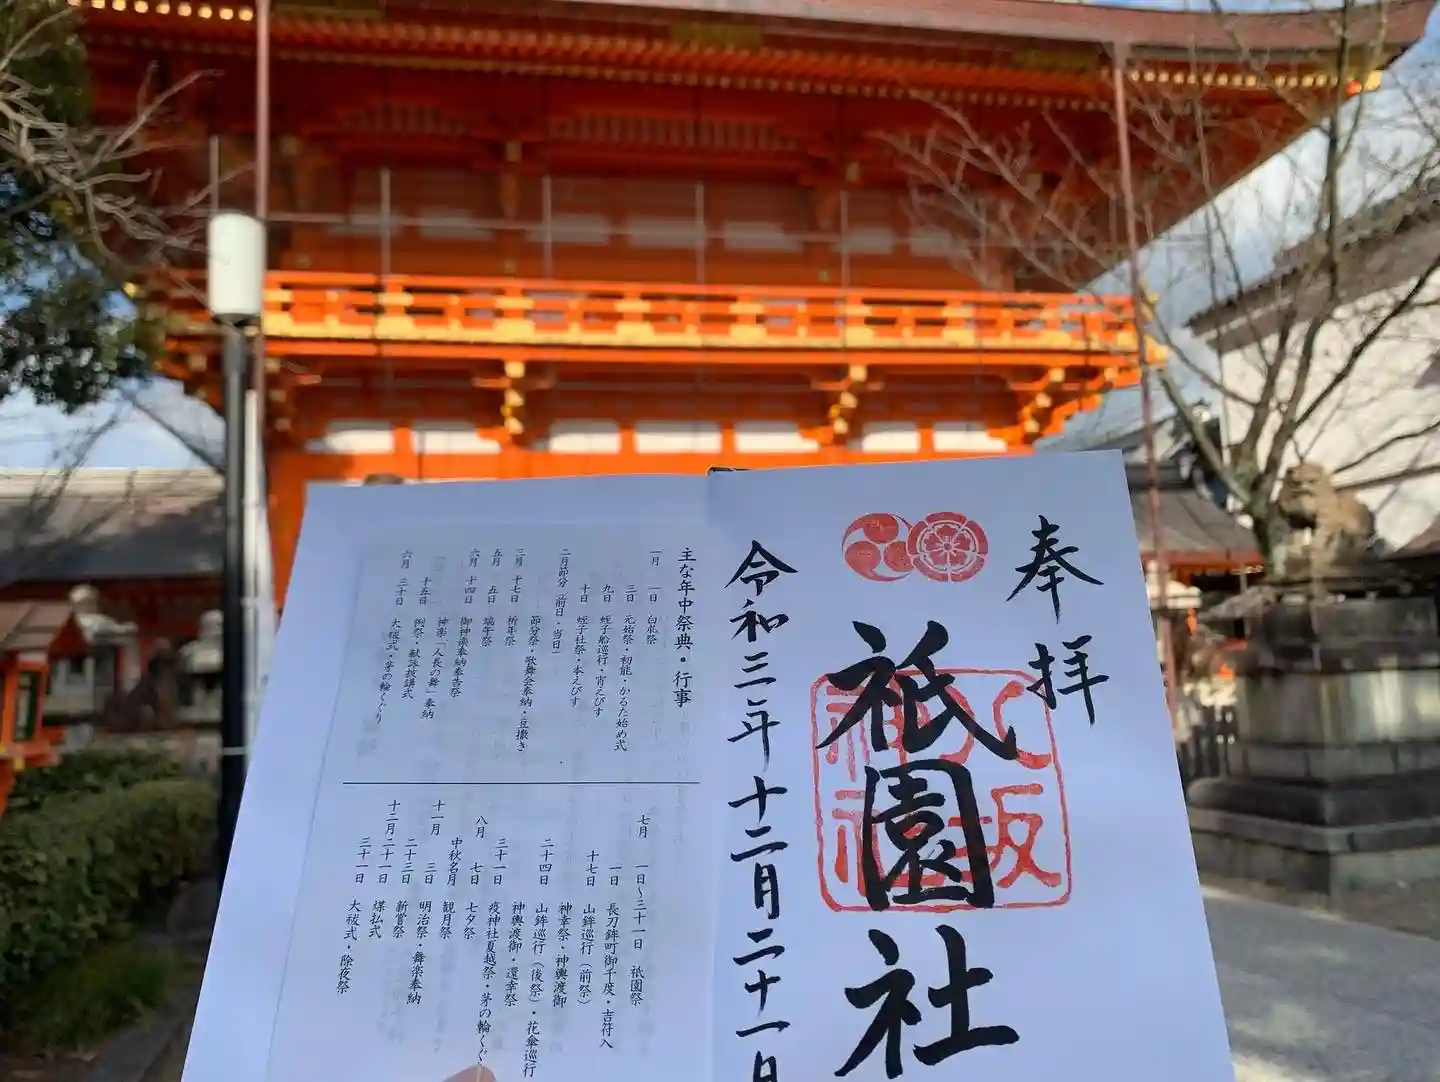 奉拝
祇園社
八坂神社
令和三年十二月二十一日
主な年中祭典・行事
一月 一日 白朮祭
三日 元始祭・初能・かるた始め式
九日 蛭子船巡行・宵えびす
十日 蛭子社祭・本えびす
二月節分(前日・当日) 節分祭・歌舞会奉納・豆撒き
三月 十七日 祈年祭
五月 五日 端午祭
六月 十四日 御神楽奉納奉告祭
神楽「人長の舞」奉納
十五日 例祭・献詠披講式
六月 三十日 大祓式・茅の輪くぐり
七月 一日〜三十一日 祇園祭
一日 長刀鉾町御千度・吉符入
十七日 山鉾巡行(前祭)
神幸祭・神輿渡御
二十四日 山鉾巡行(後祭)・花傘巡行
神輿渡御・還幸祭
三十一日 疫神社夏越祭・茅の輪くぐ
八月 七日 七夕祭
中秋名月 観月祭
十一月 三日 明治祭・舞楽奉納
二十三日 新嘗祭
十二月 二十一日 煤払式
三十一日 大祓式・除夜祭